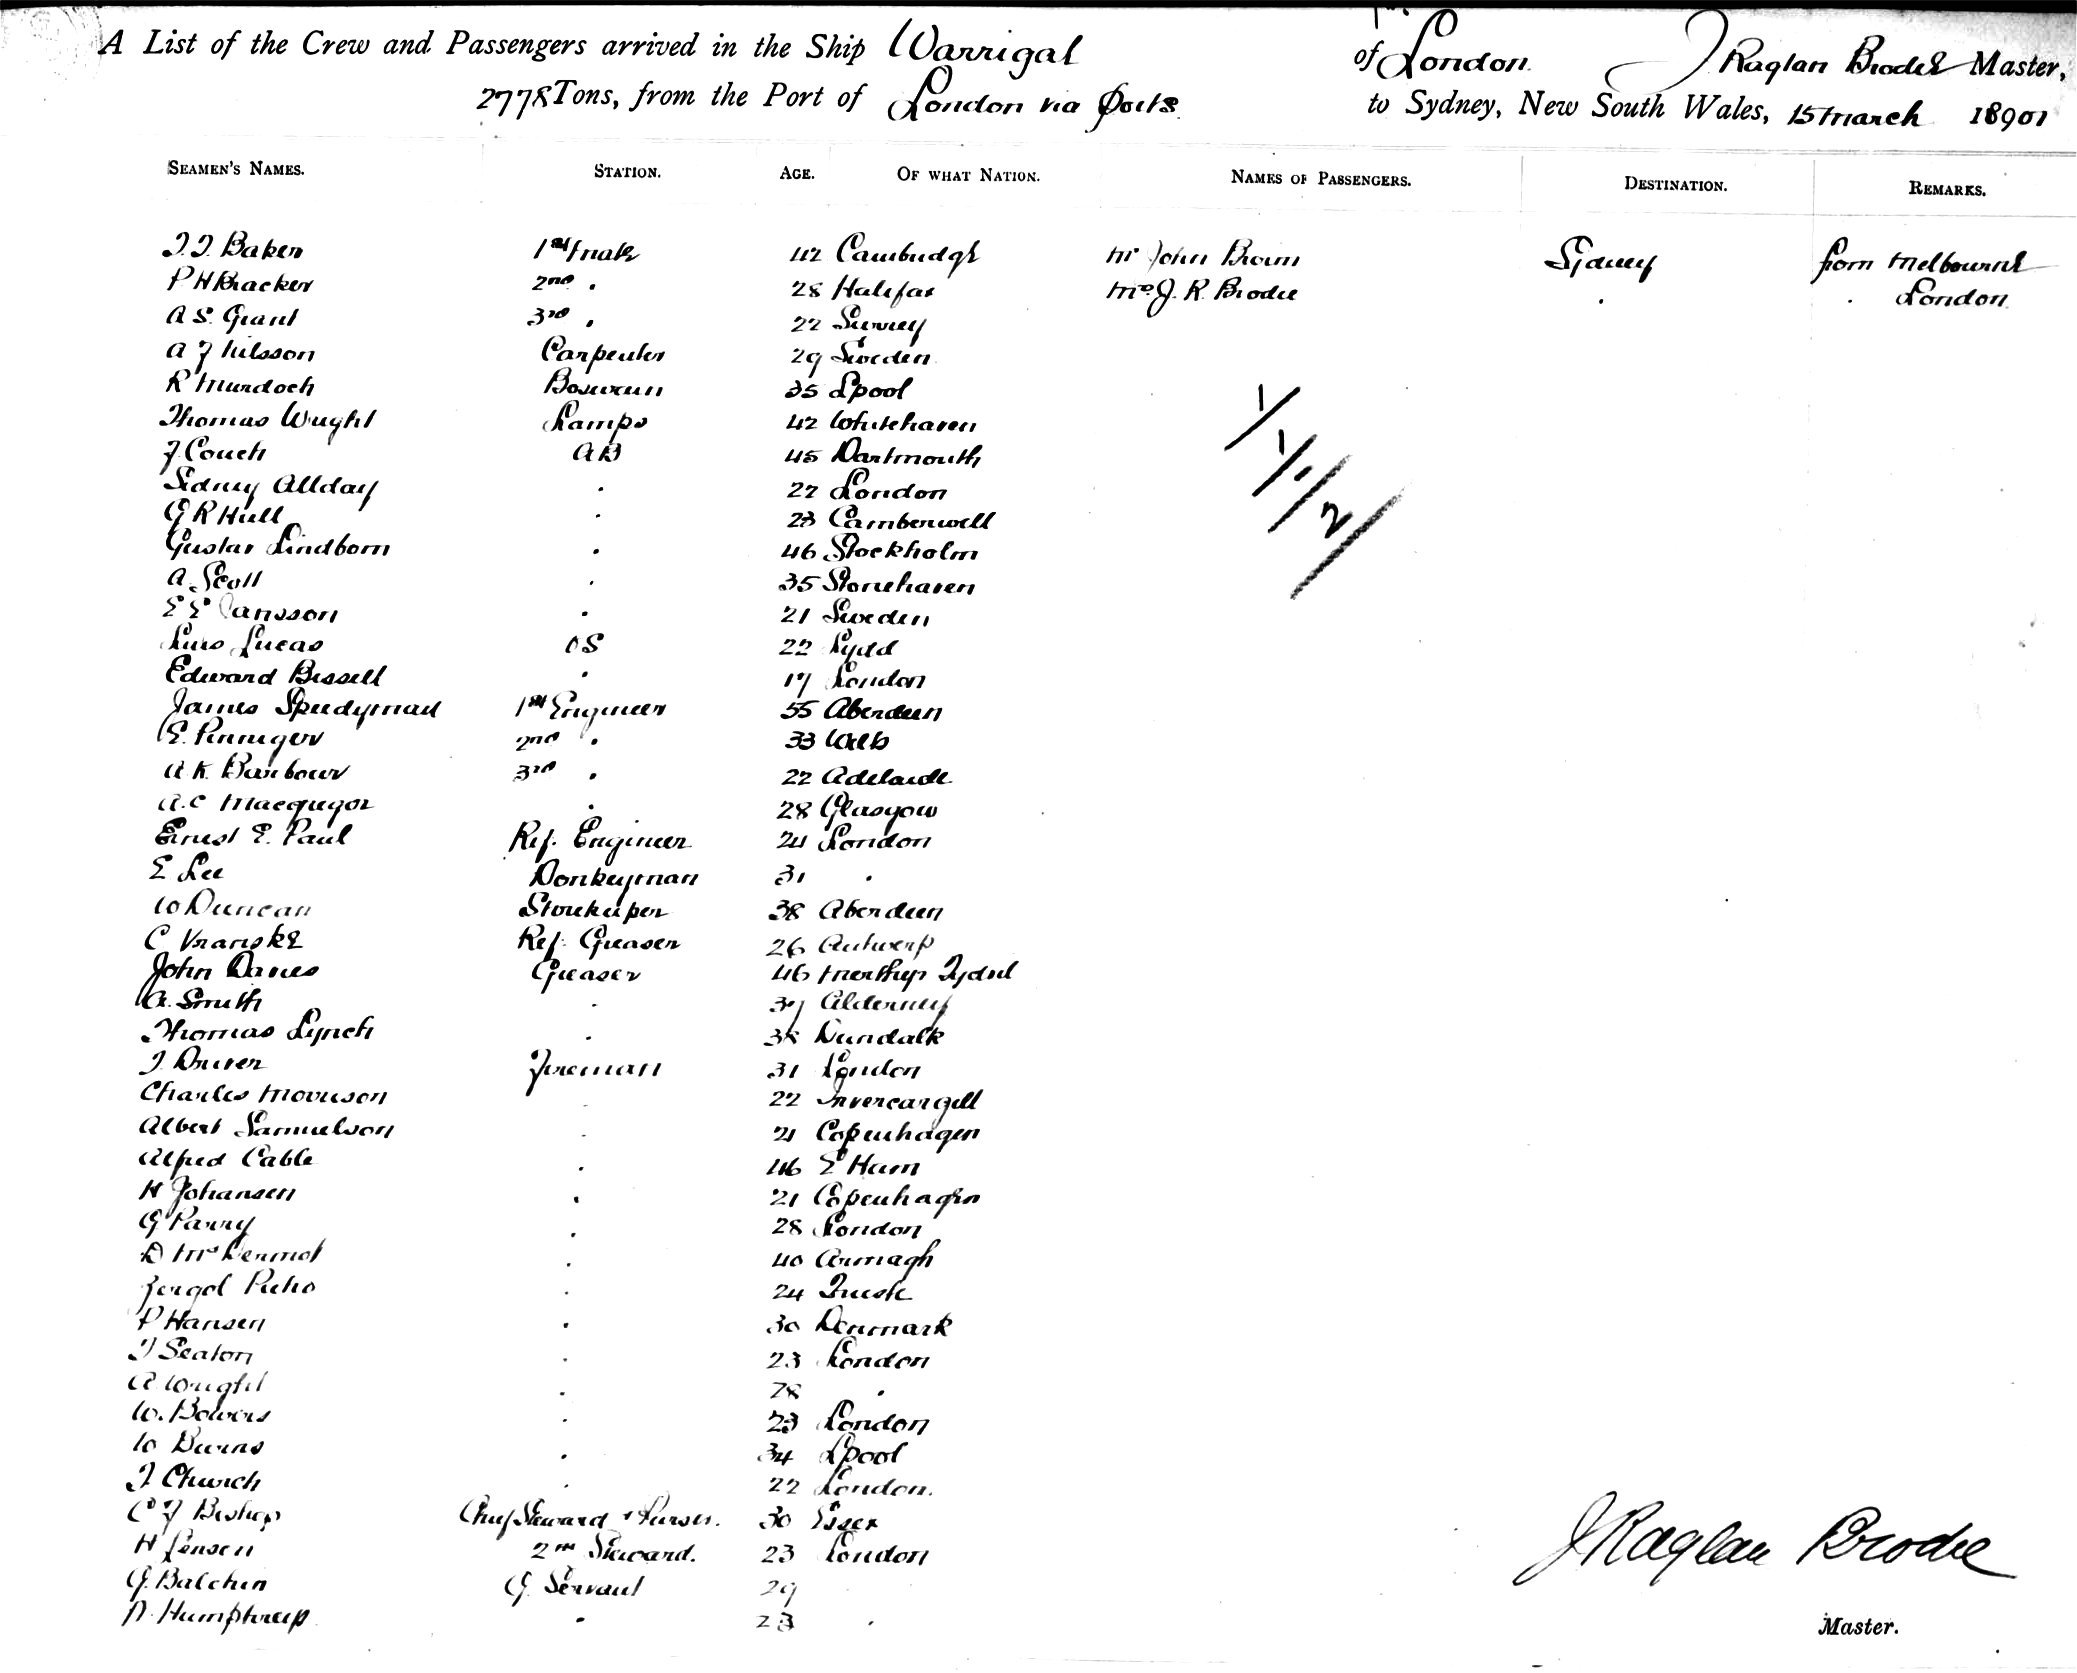 A List of the Crew and Passengers arrived in the Ship Warrigal of London J Raglan Brodie Master,
2778 Tons, from the Port of London via Ports to Sydney, New South Wales, 15 March 18901
SEAMEN'S NAMES. STATION. AGE. OF WHAT NATION. NAMES OF PASSENGERS. DESTINATION. REMARKS.
T. T. Baker 1st Mate 42 Cambridge Mr John Brown Sydney from Melbourne
P H Bracker 2nd " 28 Halifax Mrs J. R. Brodie " " London
A S. Grant 3rd " 22 Surrey
A F Nilsson Carpenter 29 Sweden
R Murdoch Boswain 35 Lpool
Thomas Wright Lamps 42 Whitehaven
F Couch AB 45 Dartmouth
Sidney Allday " 27 London
G R Hull " 23 Camberwell
Gustav Lindbom " 46 Stockholm
A. Scott " 35 Stonehaven
E E Jansson " 21 Sweden
Luis Lucas OS 22 Lydd
Edward Bissell " 17 London
James Speedyman 1st Engineer 55 Aberdeen
E. Pinniger 2nd " 33 Wilts
A. K. Barbour 3rd " 22 Adelaide
A. C Macgregor " 28 Glasgow
Ernest E. Paul Ref. Engineer 24 London
E Lee Donkeyman 31 "
W Duncan Storekeeper 38 Aberdeen
C Vranske Ref. Greaser 26 Antwerp
John Davies Greaser 46 Merthyr Tydvil
A. Smith " 37 Alderney
Thomas Lynch " 38 Dundalk
T. Driver Fireman 31 London
Charles Morrison " 22 Invercargill
Albert Samuelson " 21 Copenhagen
Alfred Cable " 46 E Ham
H Johansen " 21 Copenhagen
G Parry " 28 London
D McDermot " 40 Armagh
24 Trieste
P Hansen " 30 Denmark
T Seaton " 23 London
A Wright " 28 "
W. Bowers " 23 London
W Burns " 34 Lpool
T Church " 22 London.
C F Bishop Chief Steward & Purser. 30 Essex
H Jensen 2nd Steward. 23 London
G. Balchin G. Servant 29
A. Humphreys " 23 "
1/1/1/2/
J Raglan Brodie
Master.